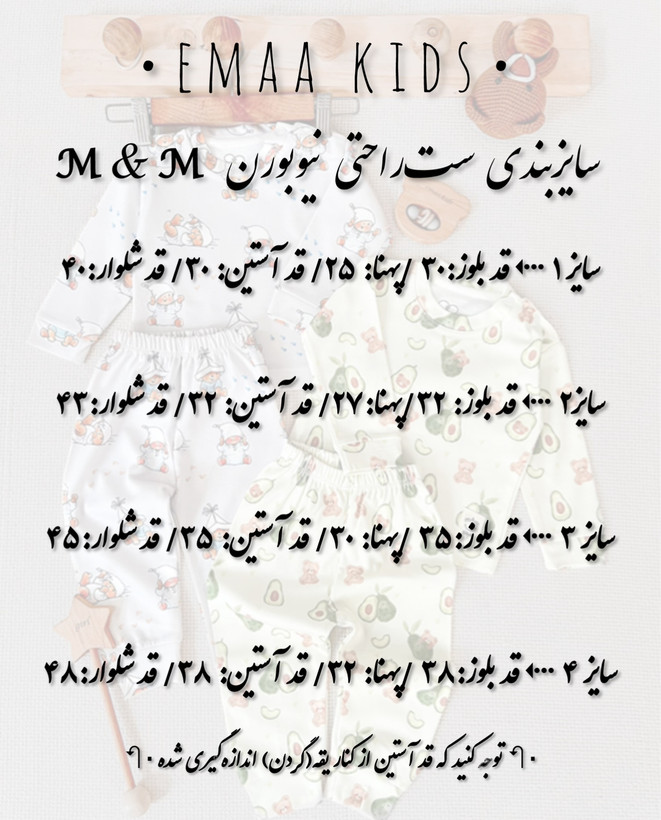 • EMAA KIDS •
سایزبندی ست‌راحتی نیوبورن M & M
سایز ۱ ⇠ قد بلوز: ۳۰ /پهنا: ۲۵/ قد آستین: ۳۰/ قد شلوار:۴۰
سایز۲ ⇠ قد بلوز: ۳۲ /پهنا:۲۷/ قد آستین: ۳۲/ قد شلوار:۴۳
سایز ۳ ⇠ قد بلوز: ۳۵ /پهنا: ۳۰/ قد آستین: ۳۵/ قد شلوار:۴۵
سایز ۴ ⇠ قد بلوز:۳۸ /پهنا: ۳۲/ قد آستین: ۳۸/ قد شلوار:۴۸
توجه کنید که قد آستین از کنار یقه(گردن) اندازه گیری شده